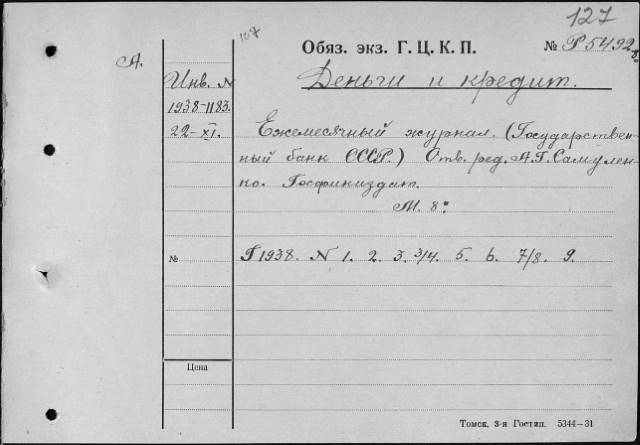 127
107
Обяз. экз. Г. Ц. К. П.
№ Р5492
А.
Деньги и кредит.
Инв. N
1938-1183.
22-XI.
Ежемесячный журнал. (Государствен-
ный банк СССР.) Отв. ред. А.Г. Самулен-
ко. Госфиниздат.
М. 8°.
№
Г 1938. N 1. 2. 3. 3/4. 5. 6. 7/8. 9.
Цена
Томск, 3-я Гостип. 5344—31